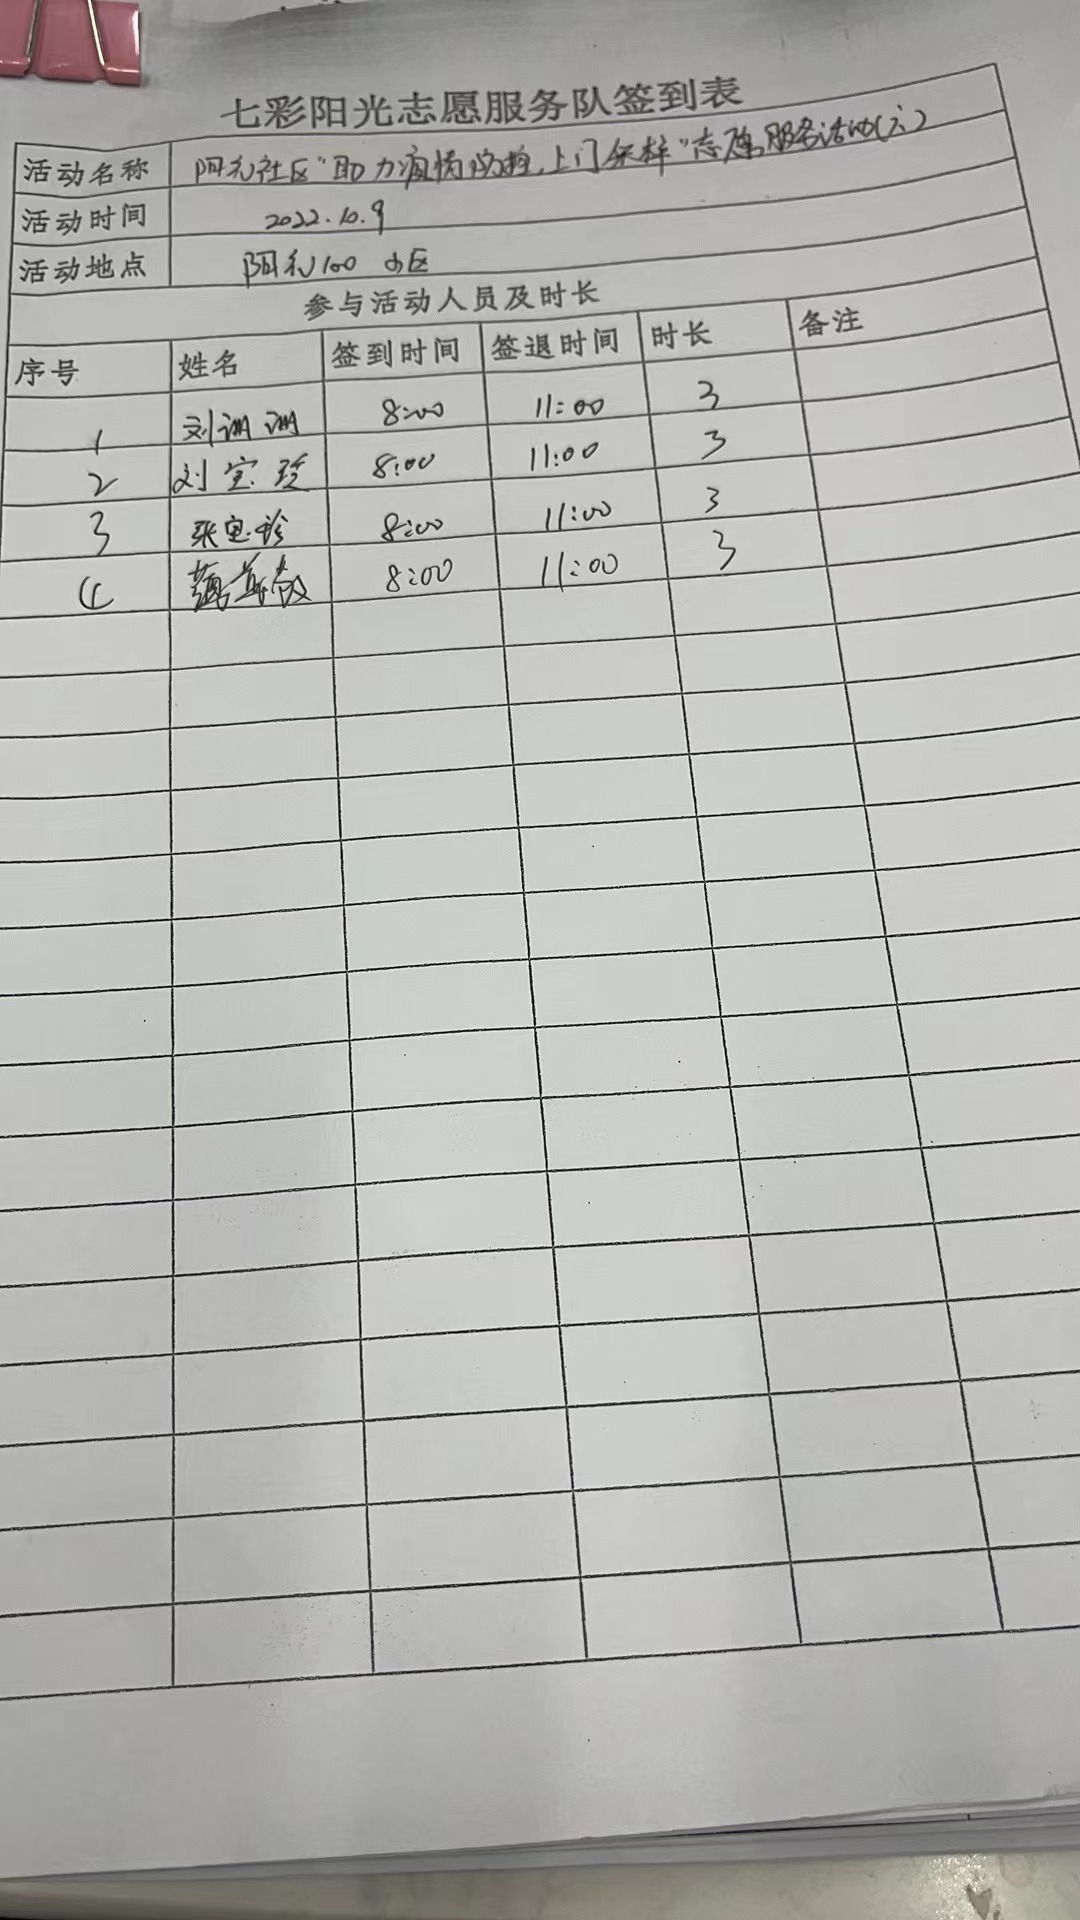 七彩阳光志愿服务队签到表
活动名称 阿礼社区“助力疫情防控,上门采样”志愿服务活动(六)
活动时间 2022.10.9
活动地点 阿礼100 小区
参与活动人员及时长
序号 姓名 签到时间 签退时间 时长 备注
1 刘 8:00 11:00 3
2 刘宝珍 8:00 11:00 3
3 张宝珍 8:00 11:00 3
4 8:00 11:00 3